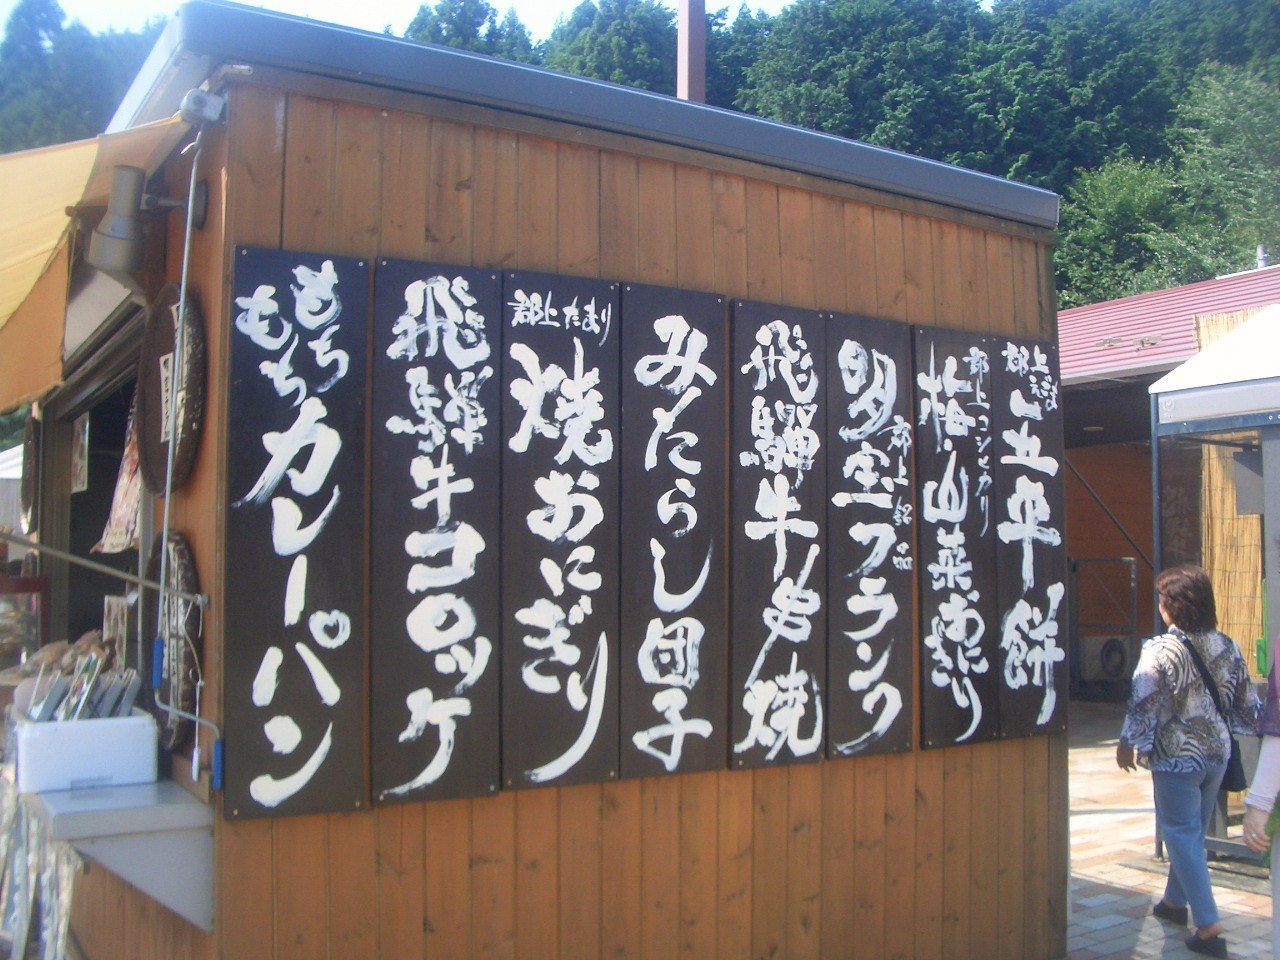 郡上えごま
五平餅
郡上コシヒカリ
梅・山菜おにぎり
郡上銘ぴん
明宝フランク
飛騨牛串焼
みたらし団子
郡上たまり
焼おにぎり
飛騨牛コロッケ
もちもちカレーパン